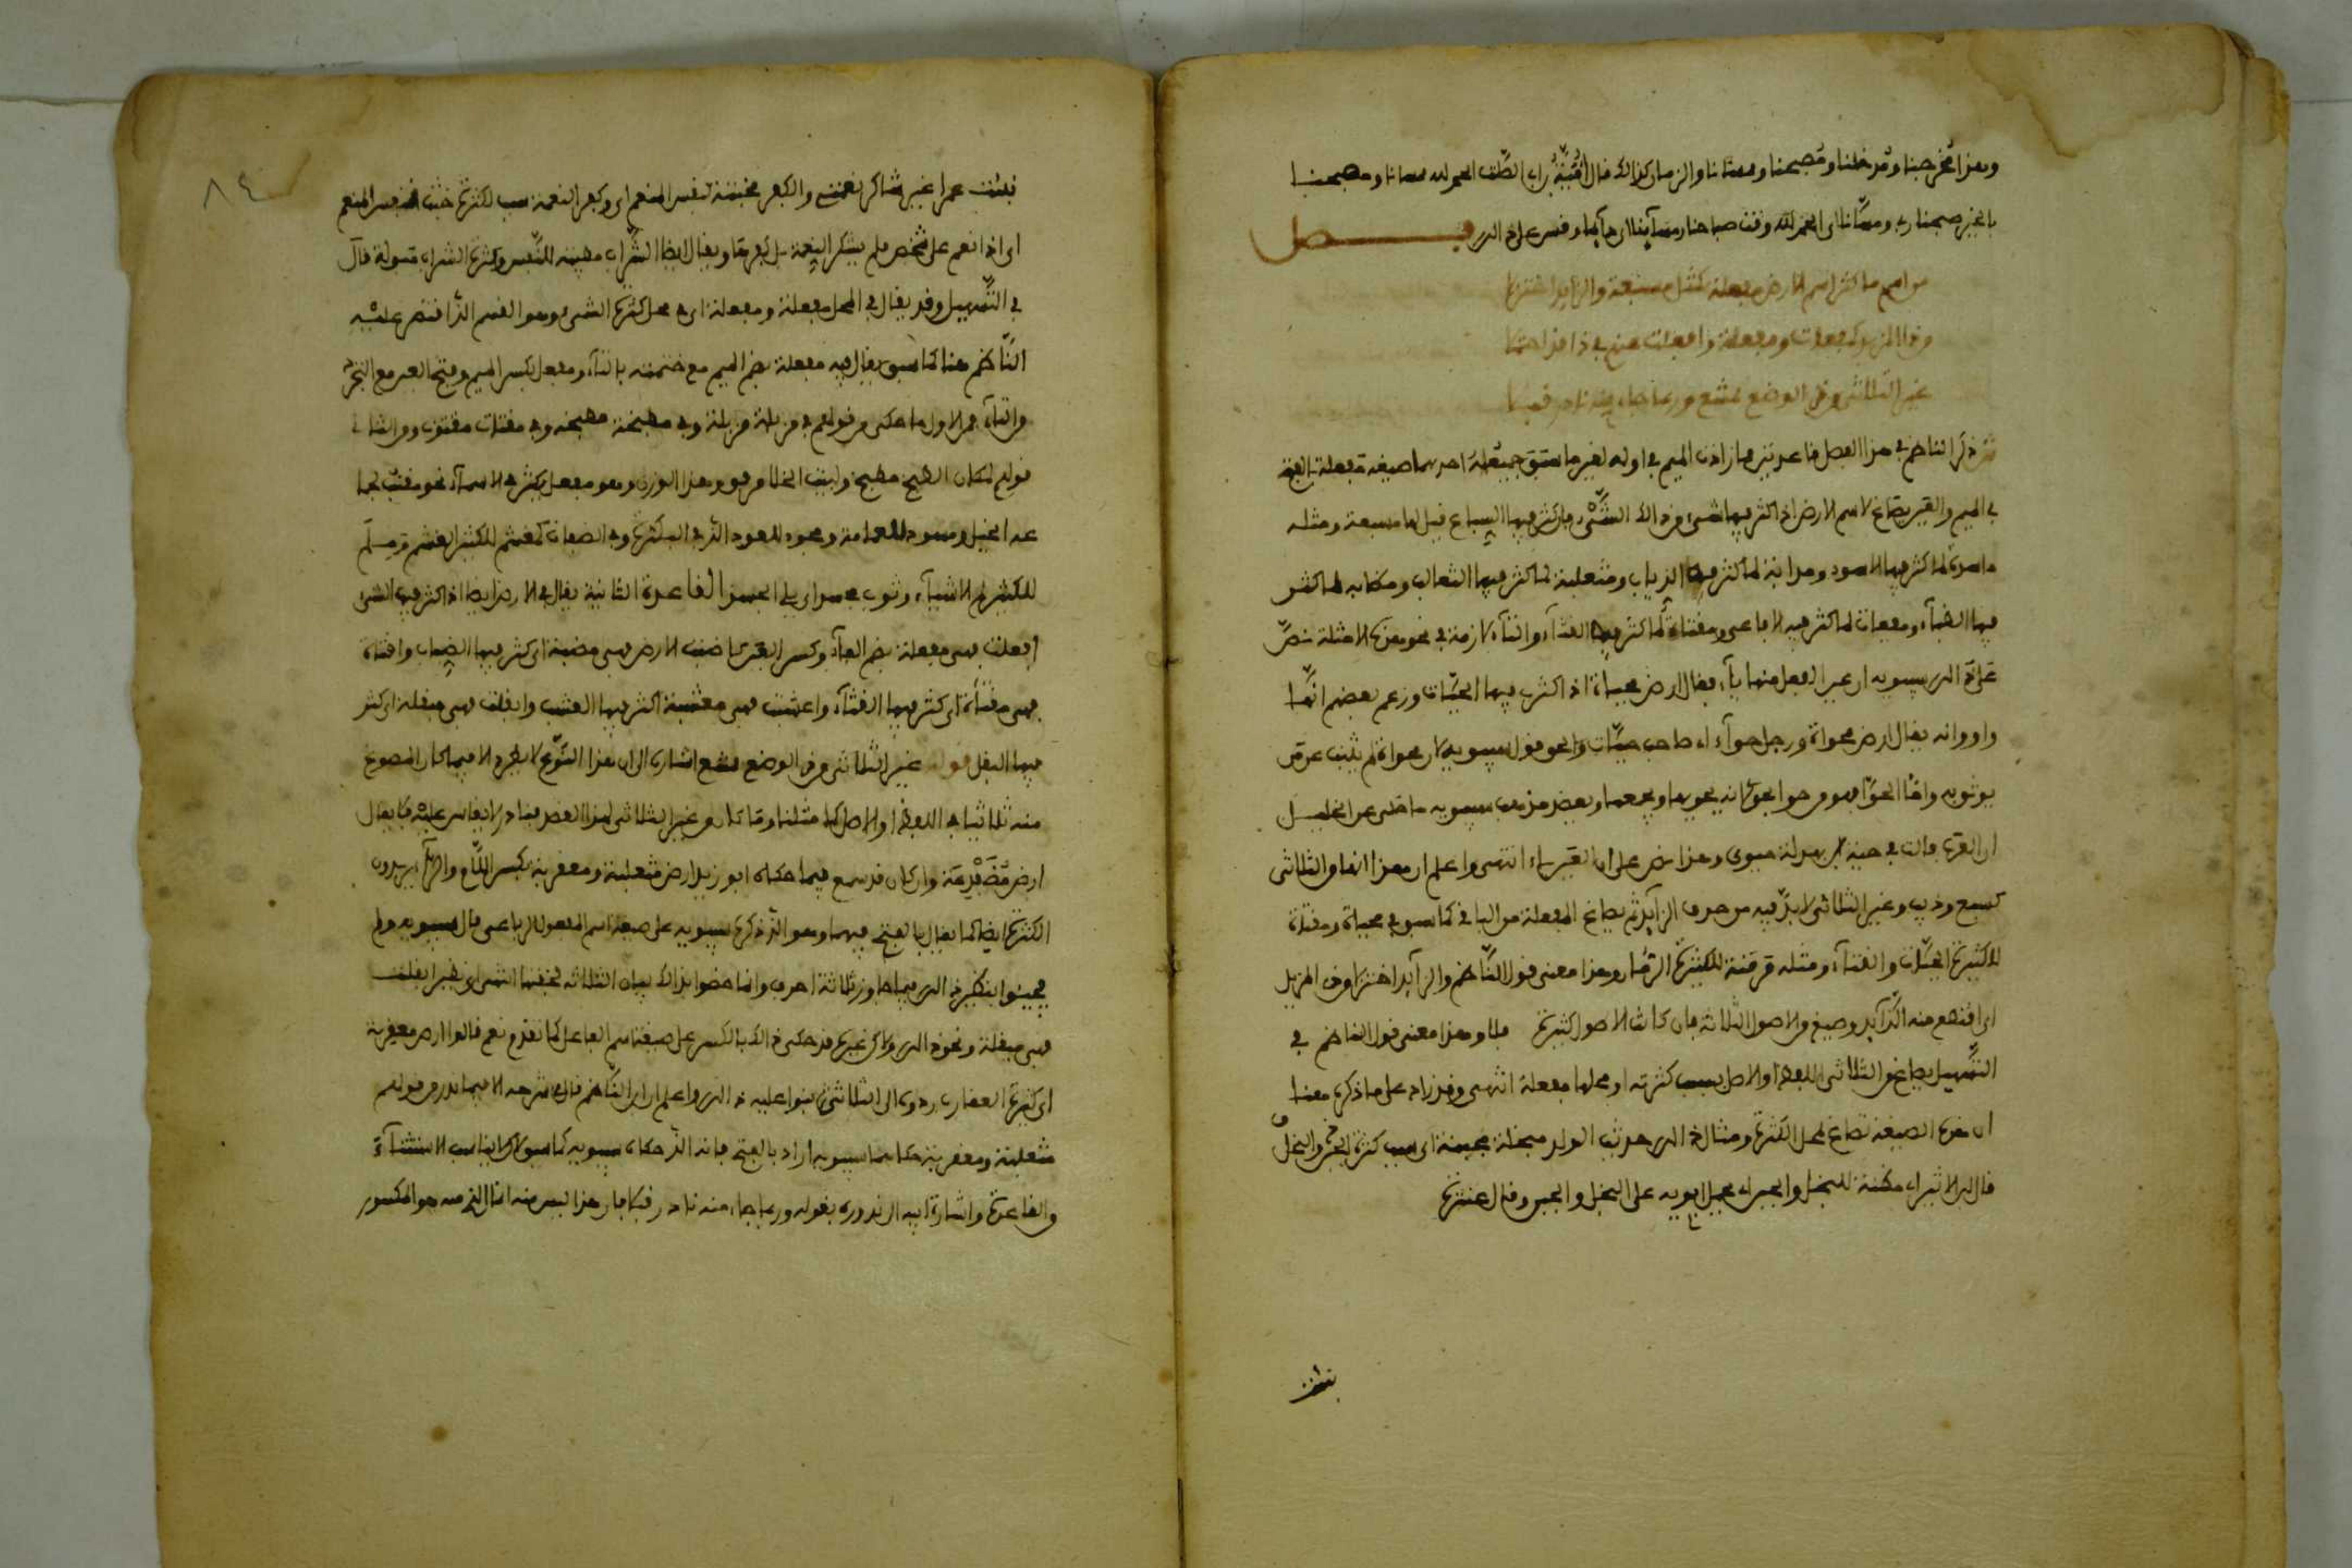 وهذا مخرجنا ومدخلنا ومصبحنا وممسانا والزمان كذلك قال أمية بن ابي الصلت الحمد لله ممسانا ومصبحنا
بالخير صبحنا ربي ومسانا اي الحمد لله وقت صباحنا ومسآينا الى وقس على ذلك فصل
من اسم ما كثر اسم الارض مفعلة كمثل مسبعة والزايد اختزلا
من المزيد كمفعات ومفعلة وافعلت عنهم في ذا قد احتملا
غير الثلاثي من ذا الوضع ممتنع وربما جاء منه نادر قبلا
ثم ذكر الناظم في هذا الفصل قاعدتين مما زادت الميم في اوله لغير ما سبق احدهما صيغة مفعلة بالفتح
في الميم والعين يصاغ لاسم الارض اذا كثر فيها شيء من ذلك الشيء فان كثر فيها السباع قيل لها مسبعة ومثله
ماسدة لما كثر فيها الاسود ومذابة لما كثر فيها الذياب ومثعلبة لما كثر فيها الثعالب ومظابه لما كثر
فيها الظبآء ومفعاة لما كثر فيه الافاعي ومقثاة لما كثر فيها القثآء والتآء لازمة في نحو هذه الامثلة نص
على ذلك سيبويه ان عين الفعل منها يآء فقال ارض محياة اذا كثرت فيها الحيات وزعم بعضهم انها
واو وانه يقال ارض محواة ورجل حوآء اي صاحب حيات والحق قول سيبويه لان محواة لم يثبت عن من
يوثق به واما الحوآ فهو من حوا يحوي لانه يحويها ويجمعها ويعضد مذهب سيبويه ما حكى عن الخليل
ان العرب قالت في حية بن بهدلة حيوي وهذا نص على ان العين ياء انتهى واعلم ان هذا انما في الثلاثي
كسبع وذيب وغير الثلاثي لابد فيه من حذف الزايد ثم يصاغ المفعلة من الباقي كما سبق في محياة ومقثاة
للكثيرة الحيات والقثآء ومثله مرمنة للكثيرة الرمان وهذا معنى قول الناظم والزايد اختزلا من المزيد
اي اقتطع منه الزآيد وصيغ من الاصول الثلاثة فان كانت الاصول كثيرة فلا وهذا معنى قول الناظم في
التسهيل يصاغ من الثلاثي اللفظ او الاصل لسبب كثرته او محلها مفعلة انتهى وقد زاد على ما ذكره هنا
ان هذه الصيغة تصاغ لمحل الكثرة ومثال ذلك حديث الولد مبخلة مجبنة اي سبب كثرة الجبن والبخل
قال ابن الاثير اي مظنة للبخل والجبن اي يحمل ابويه على البخل والجبن وقال عنترة
نبئت
نبئت عمرا غير شاكر نعمتي والكفر مخبثة لنفس المنعم اي وكفر النعمة سبب لكثرة خبث نفس المنعم
اي اذا انعم على شخص فلم يشكر النعمة بل كفرها ويقال ايضا الشراب مطيبة للنفس وكثرة الشراب مبولة قال
في التسهيل وقد يقال في المحل مفعلة ومفعلة اي في محل كثرة الشيء وهو القسم الذي اقتصر عليه
الناظم هنا كما سبق يقال فيه مفعلة بضم الميم مع ختمه بالتآء ومفعل بكسر الميم وفتح العين مع التجرد
من التآء فمن الاول ما حكي من قولهم في مزبلة مزبلة وفي مطبخة مطبخة وفي مقثاة مقثوة ومن الثاني
قولهم لمكان الطبخ مطبخ ولبيت الخلا مرفق وهذا الوزن وهو مفعل يكثر في الاسمآء نحو مقنب لجما
عة الخيل ومسود للعمامة ومجود للعود الذي في البكرة وفي الصفات كمغشم للكثير الغشم
للكثير من الاشيآء وثوب القاعدة الثانية يقال في الارض ايضا اذا كثر فيها الشيء
افعلت فهي مفعلة بضم الفآء وكسر العين كاضبت الارض فهي مضبة اي كثر فيها الضباب واقثات
فهي مقثاة اي كثر فيها القثآء واعشبت فهي معشبة اكثر فيها العشب وابقلت فهي مبقلة اي كثر
فيها البقل قوله غير الثلاثي من ذا الوضع ممتنع اشار الى ان هذا النوع لا يطرد الا فيما كان المصوغ
منه ثلاثيا في اللفظ او الاصل كما مثلنا وما كان من غير الثلاثي لهذا الغرض فنادر لا يقاس عليه فلا يقال
ارض مضفدعة وان كان قد سمع فيما حكاه ابو زيد ارض مثعلبة ومعقربة بكسر اللام والرآء يريدون
الكثرة ايضا كما يقال بالفتح فيهما وهو الذي ذكره سيبويه على صيغة اسم المفعول الرباعي قال سيبويه ولم
يجيئوا بنظير ذلك فيما جاوز ثلاثة احرف وانما خصوا بذلك بنات الثلاثة لخفتها انتهى
فهي مبقلة ونحو ذلك ولاكن غيره قد حكى ذلك بالكسر على صيغة اسم الفاعل كما تقدم نعم قالوا ارض معقرة
اي كثيرة العقارب ردوه الى الثلاثي ثم بنوا عليه ذلك واعلم ان ابن الناظم قال في شرحه الا فيما ندر من قولهم
مثعلبة ومعقربة حكاهما سيبويه اراد بالفتح فانه الذي حكاه سيبويه كما سبق لا يناسب الاستثنآء
والقاعدة واشارة ابيه الى ندوره بقوله وربما جاء منه نادر قبلا فان هذا ليس منه انما الذي منه هو المكسور
٨٤